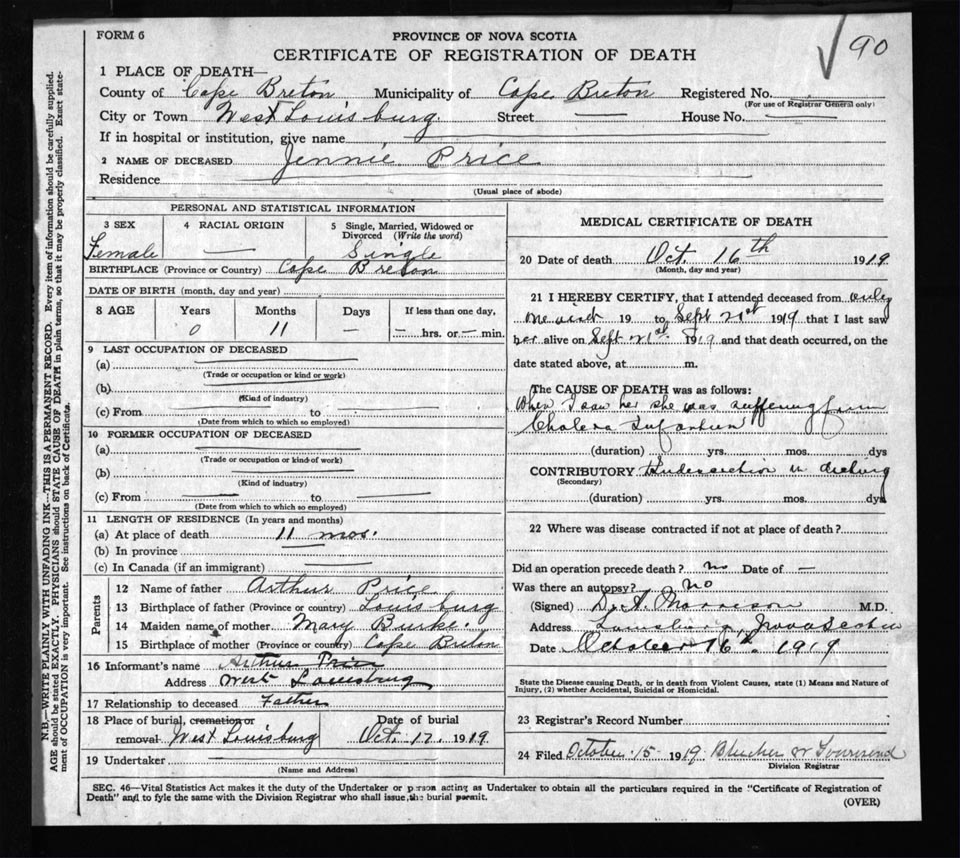 FORM 6
PROVINCE OF NOVA SCOTIA
CERTIFICATE OF REGISTRATION OF DEATH
90
1 PLACE OF DEATH—
County of Cape Breton Municipality of Cape Breton Registered No.
(For use of Registrar General only)
City or Town West Louisburg Street — House No. —
If in hospital or institution, give name
2 NAME OF DECEASED Jennie Price
Residence
(Usual place of abode)
PERSONAL AND STATISTICAL INFORMATION
3 SEX 4 RACIAL ORIGIN 5 Single, Married, Widowed or Divorced (Write the word)
Female — Single
BIRTHPLACE (Province or Country) Cape Breton
DATE OF BIRTH (month, day and year)
8 AGE Years Months Days If less than one day,
0 11 — — hrs. or — min.
9 LAST OCCUPATION OF DECEASED
(a)
(Trade or occupation or kind or work)
(b)
(Kind of industry)
(c) From to
(Date from which to which so employed)
10 FORMER OCCUPATION OF DECEASED
(a)
(Trade or occupation or kind of work)
(b)
(Kind of industry)
(c) From to
(Date from which to which so employed)
11 LENGTH OF RESIDENCE (In years and months)
(a) At place of death 11 mos.
(b) In province
(c) In Canada (if an immigrant)
Parents
12 Name of father Arthur Price
13 Birthplace of father (Province or country) Louisburg
14 Maiden name of mother Mary Burke.
15 Birthplace of mother (Province or country) Cape Breton
16 Informant's name Arthur Price
Address West Louisburg
17 Relationship to deceased Father
18 Place of burial, cremation or removal West Louisburg
Date of burial
Oct. 17. 1919
19 Undertaker
(Name and Address)
MEDICAL CERTIFICATE OF DEATH
20 Date of death Oct. 16th 1919
(Month, day and year)
21 I HEREBY CERTIFY, that I attended deceased from only
one visit 19 to Sept 21st 1919 that I last saw
her alive on Sept 21st. 1919 and that death occurred, on the
date stated above, at m.
The CAUSE OF DEATH was as follows:
When I saw her she was suffering from
Cholera Infantum
(duration) yrs. mos. dys
CONTRIBUTORY
(Secondary)
(duration) yrs. mos. dys
22 Where was disease contracted if not at place of death?
Did an operation precede death? no Date of —
Was there an autopsy? no
(Signed) D. A. Morrison M.D.
Address Louisburg, Nova Scotia
Date October 16th. 1919
State the Disease causing Death, or in death from Violent Causes, state (1) Means and Nature of
Injury, (2) whether Accidental, Suicidal or Homicidal.
23 Registrar's Record Number
24 Filed October 15 1919 Townsend
Division Registrar
SEC. 46—Vital Statistics Act makes it the duty of the Undertaker or person acting as Undertaker to obtain all the particulars required in the "Certificate of Registration of
Death" and to fyle the same with the Division Registrar who shall issue the burial permit.
(OVER)
N.B.—WRITE PLAINLY WITH UNFADING INK—THIS IS A PERMANENT RECORD. Every item of information should be carefully supplied.
AGE should be stated EXACTLY. PHYSICIANS should STATE CAUSE OF DEATH in plain terms, so that it may be properly classified. Exact state-
ment of OCCUPATION is very important. See instructions on back of Certificate.